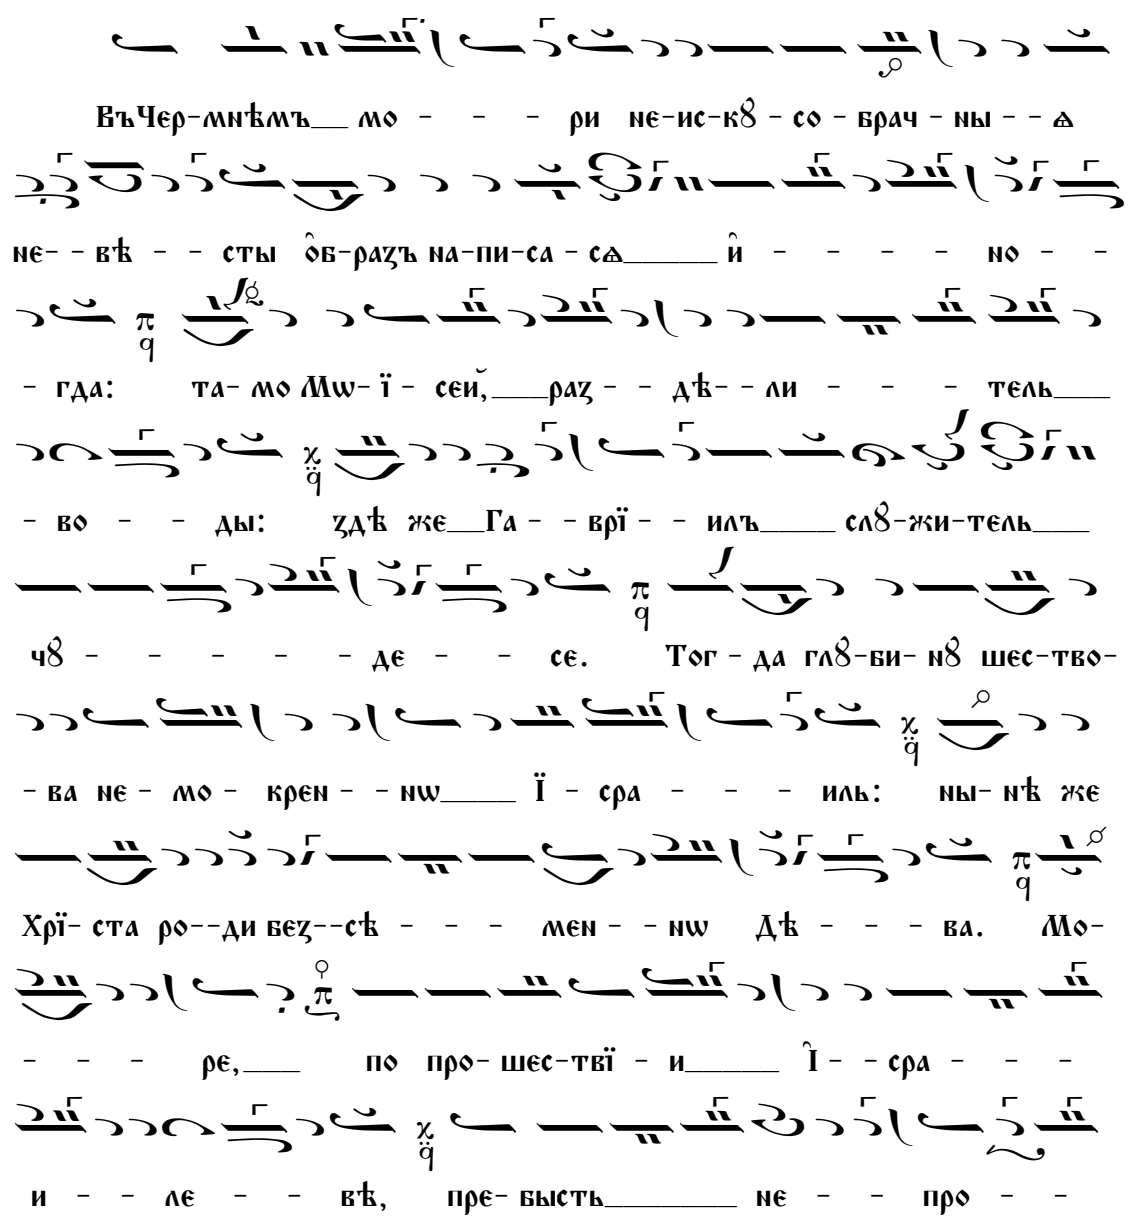 ВъЧер-мнѣмъ__ мо - - - ри не-ис-кꙋ̀ - со - брач - ны - - ѧ
не- - вѣ - - сты ѻ҆б-разъ на-пи-са - сѧ_____ и҆ - - - - но - -
- гда: та- мо Мѡ- ї - сей,___раз - - дѣ- - ли - - - тель___
- во - - ды: здѣ же__Га - - врї - - илъ____ слꙋ-жи-тель___
чꙋ - - - - - де - - се. Тог - да глꙋ-би- нꙋ шес-тво-
- ва не - мо - крен - - нѡ____ Ї - сра - - - иль: ны- нѣ же
Хрї- ста ро--ди без--сѣ - - - мен - - нѡ Дѣ - - - ва. Мо-
- - - ре,___ по про- шес-твї - и_____ І҆ - - сра - - -
и - - ле - - вѣ, пре- бысть_______ не - - про - -